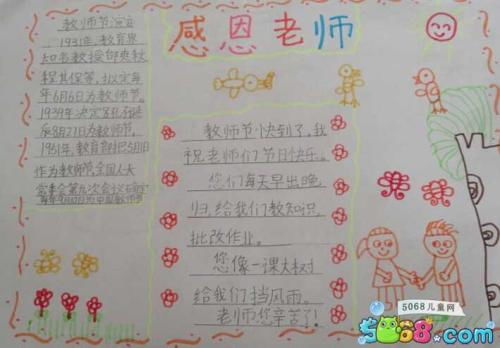 感恩老师
教师节演变
1931年,教育界
知名教授邰爽秋
程其保等,拟定每
年6月6日为教师节。
1939年决定孔子诞
辰8月27日为教师节,
1951年,教育部把5月1日
作为教师节,全国人大
常委会第九次会议
年9月10日为中国教师节
教师节快到了,我
祝老师们节日快乐。
您们每天早出晚
归,给我们教知识,
批改作业。
您像一课大树
给我们挡风雨。
老师您辛苦了!
5068儿童网
5068.com